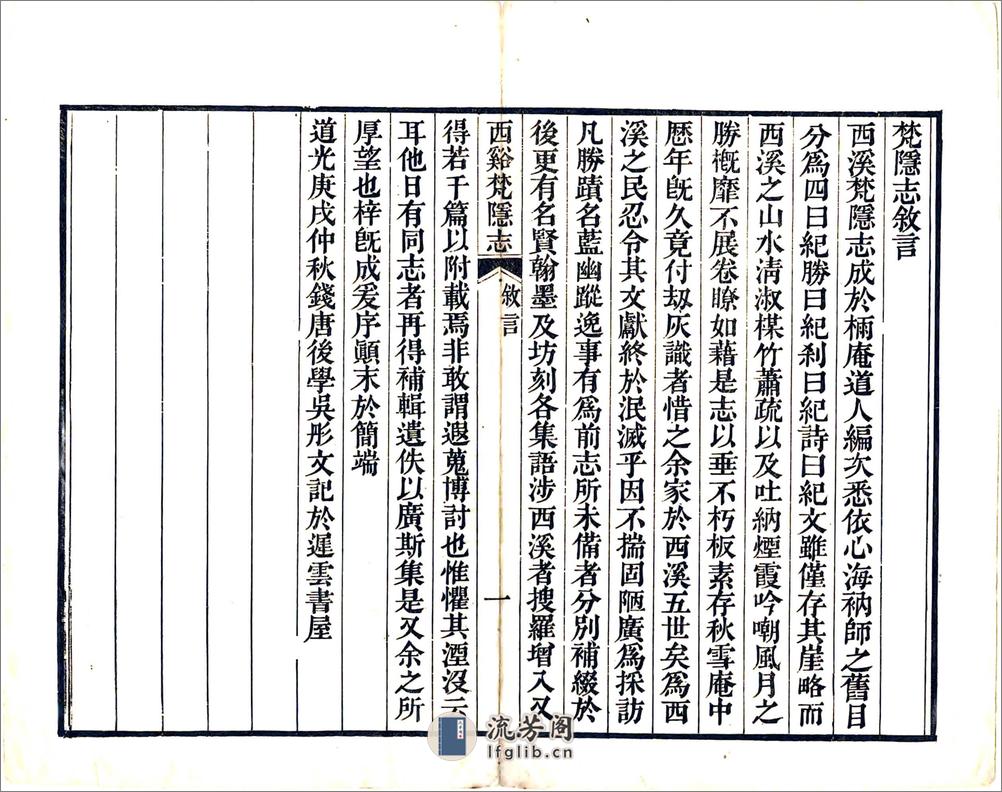 梵隱志敘言
西溪梵隱志成於㮯庵道人編次悉依心海衲師之舊目
分爲四曰紀勝曰紀刹曰紀詩曰紀文雖僅存其崖略而
西溪之山水清淑楳竹蕭疏以及吐納煙霞吟嘲風月之
勝槪靡不展卷瞭如藉是志以垂不朽板素存秋雪庵中
歷年旣久竟付刼灰識者惜之余家於西溪五世矣爲西
溪之民忍令其文獻終於泯滅乎因不揣固陋廣爲採訪
凡勝蹟名藍幽蹤逸事有爲前志所未備者分別補綴於
後更有名賢翰墨及坊刻各集語涉西溪者搜羅增入又
西谿梵隱志 敘言 一
得若干篇以附載焉非敢謂遐蒐博討也惟懼其湮沒云
耳他日有同志者再得補輯遺佚以廣斯集是又余之所
厚望也梓旣成爰序顚末於簡端
道光庚戌仲秋錢唐後學吳彤文記於遲雲書屋
流芳阁
lfglib.cn